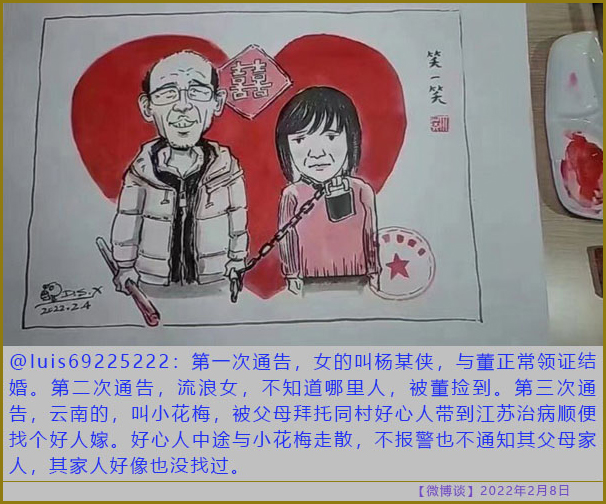 囍
笑一笑
D.S.X
2022.2.4
@luis69225222：第一次通告，女的叫杨某侠，与董正常领证结
婚。第二次通告，流浪女，不知道哪里人，被董捡到。第三次通
告，云南的，叫小花梅，被父母拜托同村好心人带到江苏治病顺便
找个好人嫁。好心人中途与小花梅走散，不报警也不通知其父母家
人，其家人好像也没找过。
【微博谈】2022年2月8日